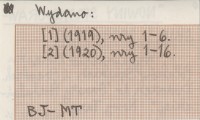 Wydano:
[1] (1919), nry 1-6.
[2] (1920), nry 1-16.
BJ-MT